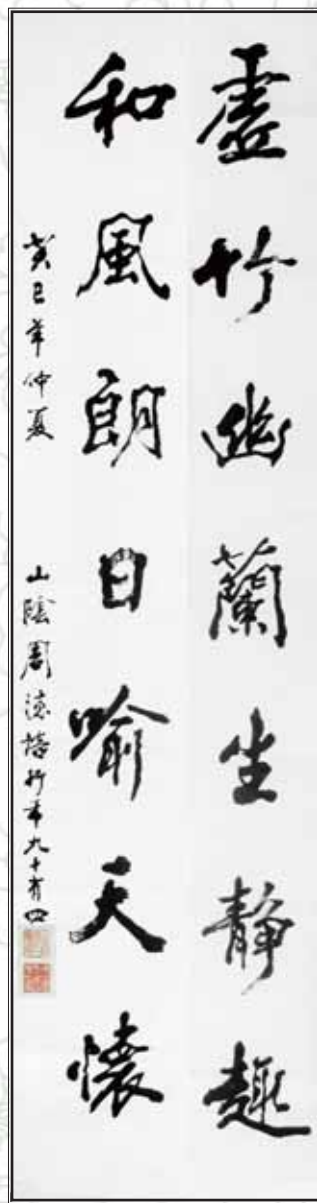 虛竹幽蘭生靜趣
和風朗日喻天懷
癸巳年仲夏
山陰周德培行年九十有四